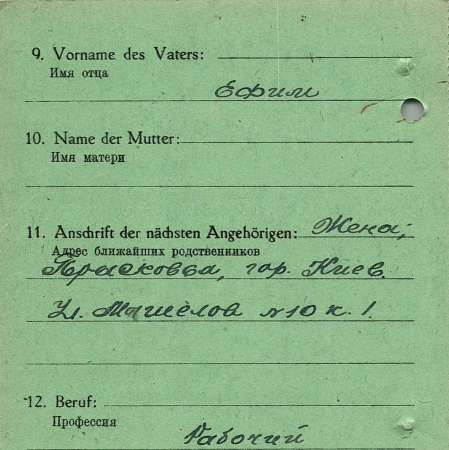 9. Vorname des Vaters:
Имя отца
Ефим
10. Name der Mutter:
Имя матери
11. Anschrift der nächsten Angehörigen: Жена,
Адрес ближайших родственников
Прасковья, гор. Киев.
Ул. №10 к. 1.
12. Beruf:
Профессия
Рабочий